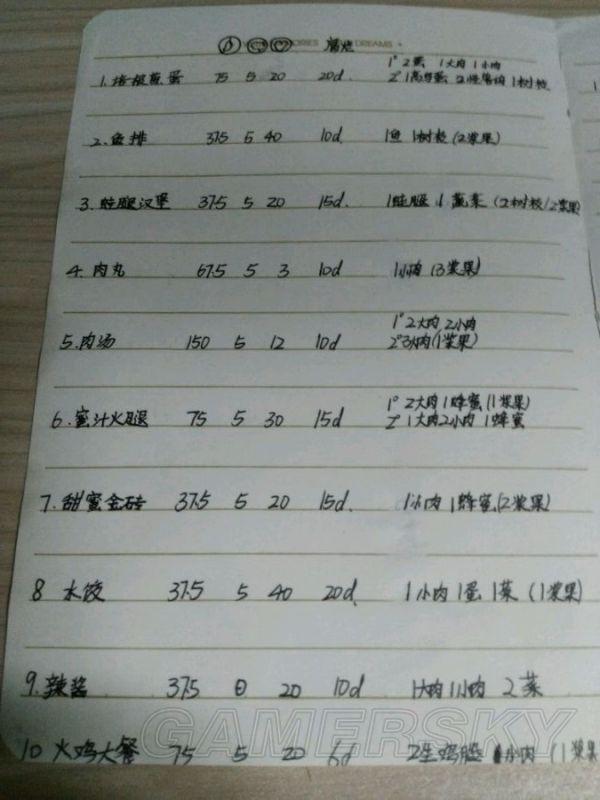 ORIES DREAMS 腐烂
1° 2蛋 1大肉 1小肉
1. 培根煎蛋 75 5 20 20d 2° 1高鸟蛋 2怪兽肉 1树枝
2. 鱼排 37.5 5 40 10d 1鱼 1树枝 (2浆果)
3. 蛙腿汉堡 37.5 5 20 15d. 1蛙腿 1蔬菜 (2树枝/2浆果)
4. 肉丸 67.5 5 3 10d 1小肉 (3浆果)
1° 2大肉 2小肉
5. 肉汤 150 5 12 10d 2° 3小肉(1浆果)
1° 2大肉 1蜂蜜 (1浆果)
6. 蜜汁火腿 75 5 30 15d 2° 1大肉2小肉 1蜂蜜
7. 甜蜜金砖 37.5 5 20 15d. 1小肉 1蜂蜜 (2浆果)
8 水饺 37.5 5 40 20d 1小肉 1蛋 1菜 (1浆果)
9. 辣酱 37.5 0 20 10d 1大肉 1小肉 2菜
10 火鸡大餐 75 5 20 6d 2生鸡腿 1小肉 (1浆果
GAMERSKY